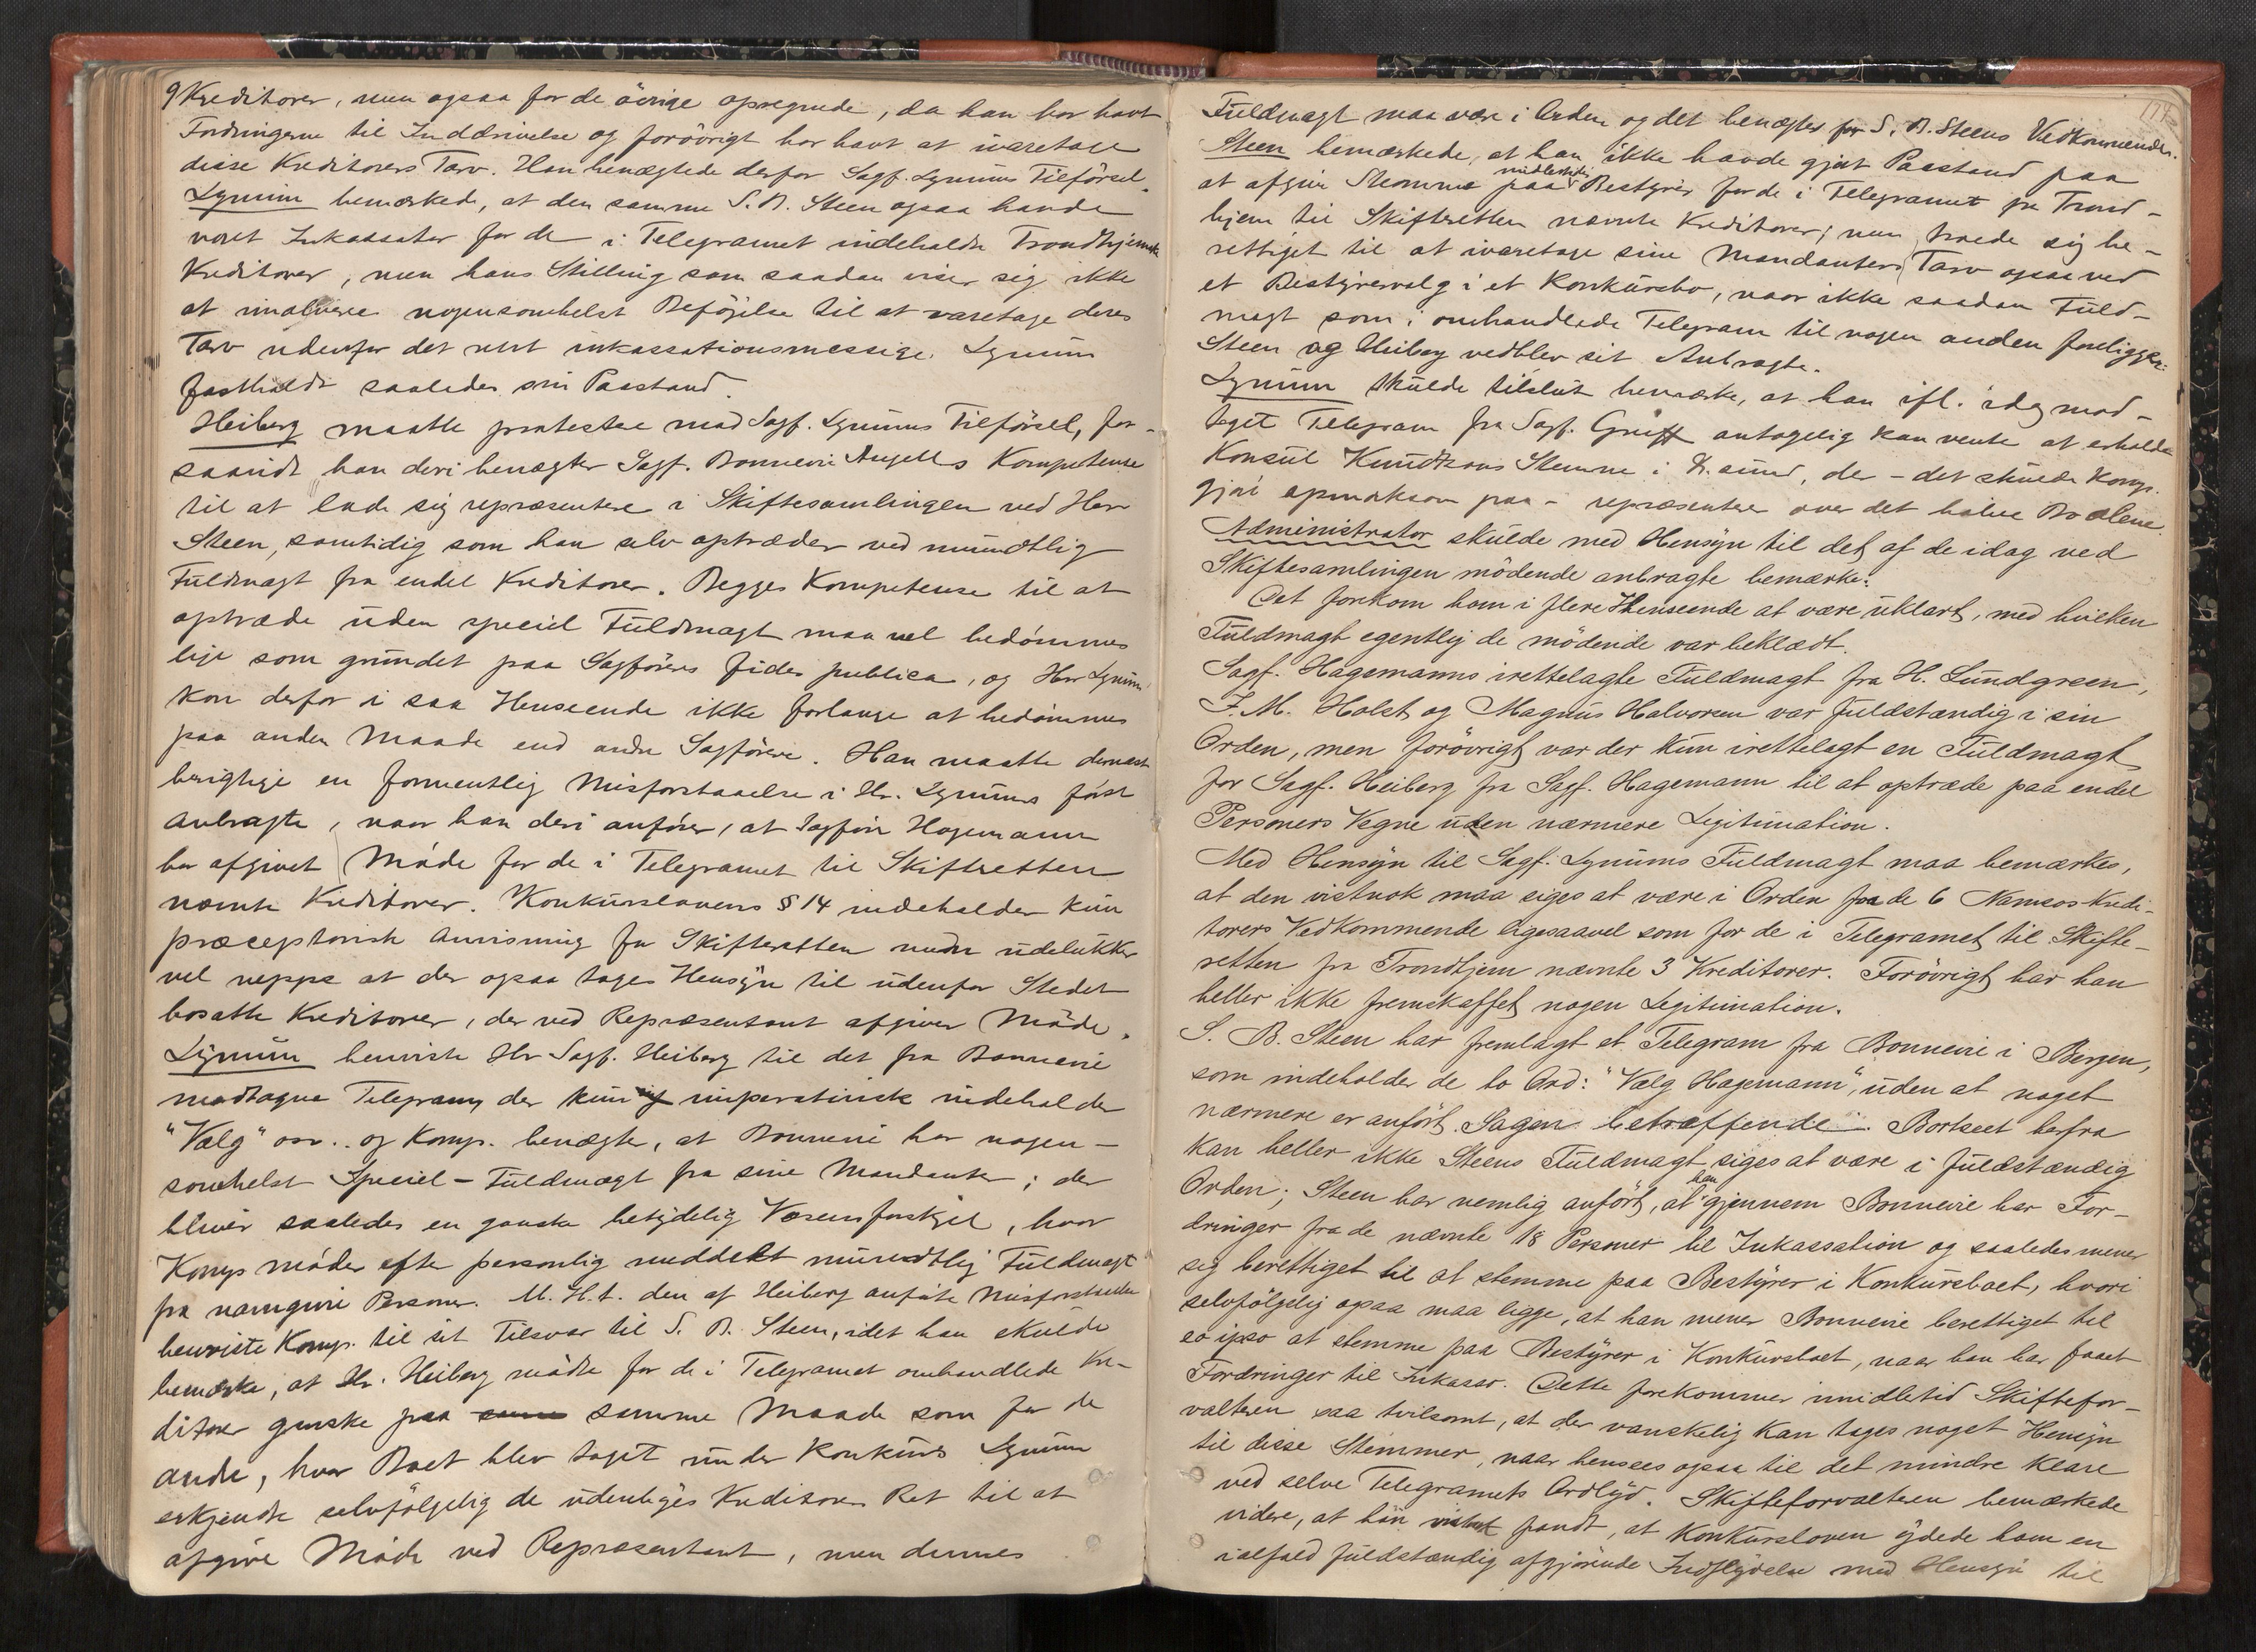 9 Kreditorer, men ogsaa for de øvrige opregnede, da han har havt
Fordringerne til Inddrivelse og forøvrigt har havt at ivaretage
disse Kreditorers Tarv. Han benægtede derfor Sagf. Lynums Tilførsel.
Lynum bemærkede, at den samme S. B. Steen ogsaa havde
været Inkassator for de i Telegramet indeholdte Trondhjemske
Kreditorer, men hans Stilling som saadan viser sig ikke
at involvere nogensomhelst Beføjelse til at varetage deres
Tarv udenfor det rent inkassationsmessige. Lynum
fastholdt saaledes sin Paastand.
Heiberg maatte protestere mod Sagf. Lynums Tilførsel, for-
saavidt han deri benægter Sagf. Bonnevie Angells Kompetense
til at lade sig repræsentere i Skiftesamlingen ved Herr
Steen, samtidig som han selv optræder ved mundtlig
Fuldmagt fra endel Kreditorer. Begges Kompetense til at
optræde uden speciel Fuldmagt maa vel bedømmes
lige som grundet paa Sagføreres fides publica, og Herr Lynum
kan derfor i saa Henseende ikke forlange at bedømmes
paa anden Maade end andre Sagførere. Han maatte dernæst
berigtige en formentlig Misforstaaelse i Hr. Lynums først
Anbragte, naar han deri anfører, at Sagfører Hagemann
har afgivet Møde for de i Telegramet til Skifteretten
nævnte Kreditorer. Konkurslovens § 14 indeholder kun
præceptorisk Anvisning for Skifteretten men udelukker
vel neppe at der ogsaa tages Hensyn til udenfor Stedet
bosatte Kreditorer, der ved Repræsentant afgiver Møde.
Lynum henviste Hr Sagf. Heiberg til det fra Bonnevie
modtagne Telegram, der kun imperativisk indeholder
"Vælg" osv. og Komp. benægter, at Bonnevie har nogen-
somhelst Speciel-Fuldmagt fra sine Mandanter; der
bliver saaledes en ganske betydelig Væsensforskjel, hvor
Komp møder efter personlig meddelt mundtlig Fuldmagt
fra navngivne Personer. M. H. t. den af Heiberg anførte Misforstaaelse
henviste Komp. til sit Tilsvar til S. B. Steen, idet han skulde
bemærke, at Hr. Heiberg mødte for de i Telegramet omhandlede Kre-
ditorer ganske paa samme Maade som for de
andre, hvor Boet blev taget under Konkurs. Lynum
erkjendte selvfølgelig de udenbyes Kreditorers Ret til at
afgive Møde ved Repræsentant, men dennes
174
Fuldmagt maa være i Orden og det benægtes for S. B. Steens Vedkommende.
Steen bemærkede, at han ikke havde gjort Paastand paa
at afgive Stemme paa midlertidig Bestyrer for de i Telegramet fra Trond-
hjem til Skifteretten nævnte Kreditorer; men troede sig be-
rettiget til at ivaretage sine Mandanters Tarv ogsaa ved
et Bestyrervalg i et Konkursbo, naar ikke saadan Fuld-
magt som i omhandlede Telegram til nogen anden foreligger.
Steen og Heiberg vedblev sit Anbragte.
Lynum skulde tilslut bemærke, at han ifl. idag mod-
taget Telegram fra Sagf. Greiff antagelig kan vente at erholde
Konsul Knudtzons Stemme i K.sund, der – det skulde Komp.
gjøre opmærksom paa – repræsenterer over det halve Bo alene.
Administrator skulde med Hensyn til det af de idag ved
Skiftesamlingen mødende anbragte bemærke:
Det forekom ham i flere Henseende at være uklart, med hvilken
Fuldmagt egentlig de mødende var beklædt.
Sagf. Hagemanns irettelagte Fuldmagt fra H. Lundgreen,
F. M. Holst og Magnus Halvorsen var fuldstændig i sin
Orden, men forøvrigt var der kun irettelagt en Fuldmagt
for Sagf. Heiberg fra Sagf. Hagemann til at optræde paa endel
Personers Vegne uden nærmere Legitimation.
Med Hensyn til Sagf. Lynums Fuldmagt maa bemærkes,
at den vistnok maa siges at være i Orden for de 6 Namsos-Kredi-
torers Vedkommende ligesaavel som for de i Telegramet til Skifte-
retten fra Trondhjem nævnte 3 Kreditorer. Forøvrigt har han
heller ikke fremskaffet nogen Legitimation.
S. B. Steen har fremlagt et Telegram fra Bonnevie i Bergen,
som indeholder de to Ord: "Vælg Hagemann", uden at noget
nærmere er anført Sagen betræffende. Bortseet herfra
kan heller ikke Steens Fuldmagt siges at være i fuldstændig
Orden; Steen har nemlig anført, at han gjennem Bonnevie har For-
dringer fra de nævnte 18 Personer til Inkassation og saaledes mener
sig berettiget til at stemme paa Bestyrer i Konkursboet, hvori
selvfølgelig ogsaa maa ligge, at han mener Bonnevie berettiget til
eo ipso at stemme paa Bestyrer i Konkursboet, naar han har faaet
Fordringer til Inkasso. Dette forekommer imidlertid Skiftefor-
valteren saa tvilsomt, at der vanskelig kan tages noget Hensyn
til disse Stemmer, naar hensees ogsaa til det mindre klare
ved selve Telegramets Ordlyd. Skifteforvalteren bemærkede
videre, at han vistnok fandt, at Konkursloven ydede ham en
ialfald fuldstændig afgjørende Indflydelse med Hensyn til